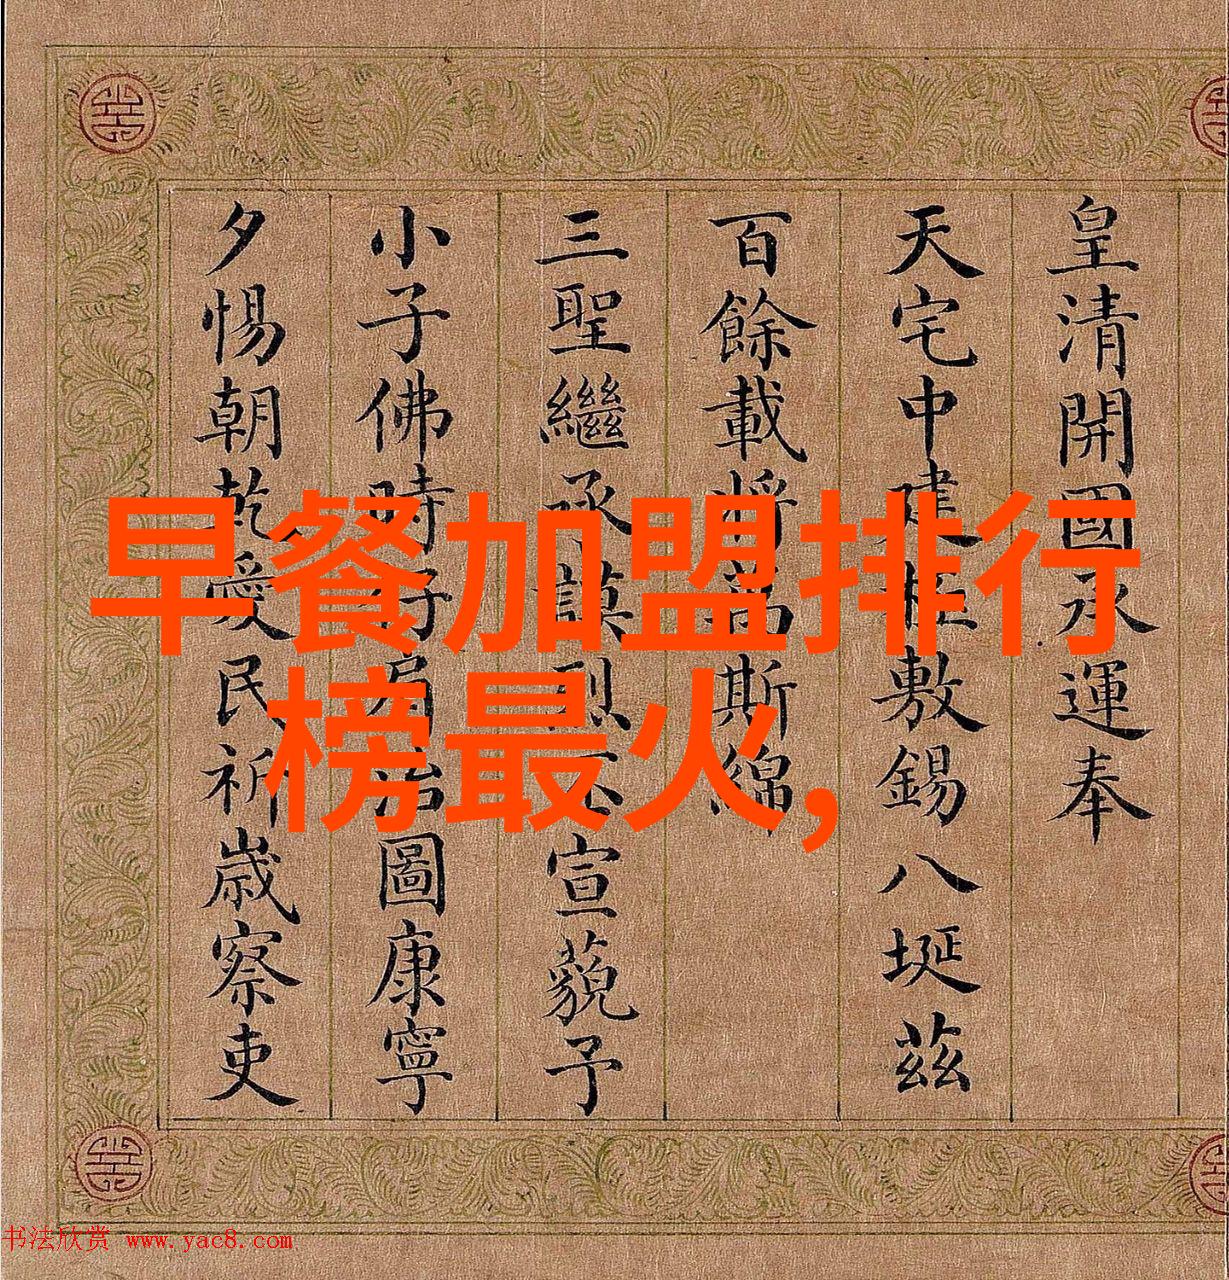 早餐加盟排行
榜最火,
皇清開國承運奉
天宅中建極敷錫八埏茲
百餘載將萬斯綿
三聖繼承謨烈宣藐予
小子佛時仔肩治圖康寧
夕惕朝乾愛民祈歲察吏
书法欣赏 www.yac8.com